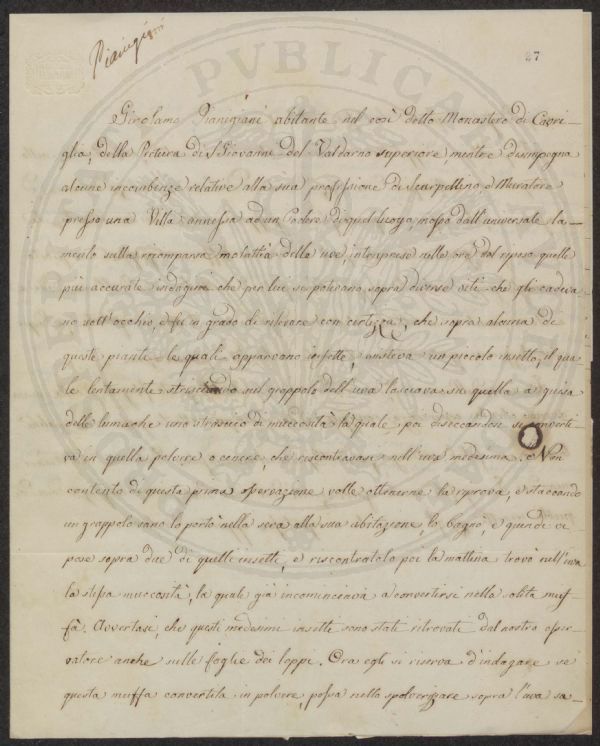 Pianigiani
27
Girolamo Pianigiani abitante nel così detto Monastero di Capri-
glia, della Pretura di S. Giovanni del Valdarno superiore mentre disimpegna
alcune incombenze relative alla sua professione di Scarpellino, e Muratore
presso una Villa annessa ad un Podere di quel luogo, mosso dall'universale la-
mento sulla ricomparsa malattia delle uve, intraprese nelle ore del riposo quelle
più accurate indagini che per lui si potevano, sopra diverse viti che gli cadeva-
no sott'occhio, e fu in grado di rilevare con certezza, che sopra alcuna di
queste piante le quali apparivano infette, esisteva un piccolo insetto, il qua-
le lentamente strisciando sul grappolo dell'uva lasciava su quella a guisa
delle lumache uno strascico di muccosità la quale poi diseccandosi si converti-
va in quella polvere o cenere, che riscontravasi nell'uva medesima. Non
contento di questa prima osservazione volle ottenerne la riprova, e staccando
un grappolo sano lo portò nella sera alla sua abitazione, lo bagnò, e quindi vi
pose sopra due di quelli insetti, e riscontratolo poi la mattina trovò nell'uva
la stessa muccosità, la quale già incominciava a convertirsi nella solita muf-
fa. Avvertasi, che questi medesimi insetti sono stati ritrovati dal nostro osser-
vatore anche sulle foglie dei loppi. Ora egli si riserva d'indagare se
questa muffa convertita in polvere, possa nello spolverizzare sopra l'uva sa-